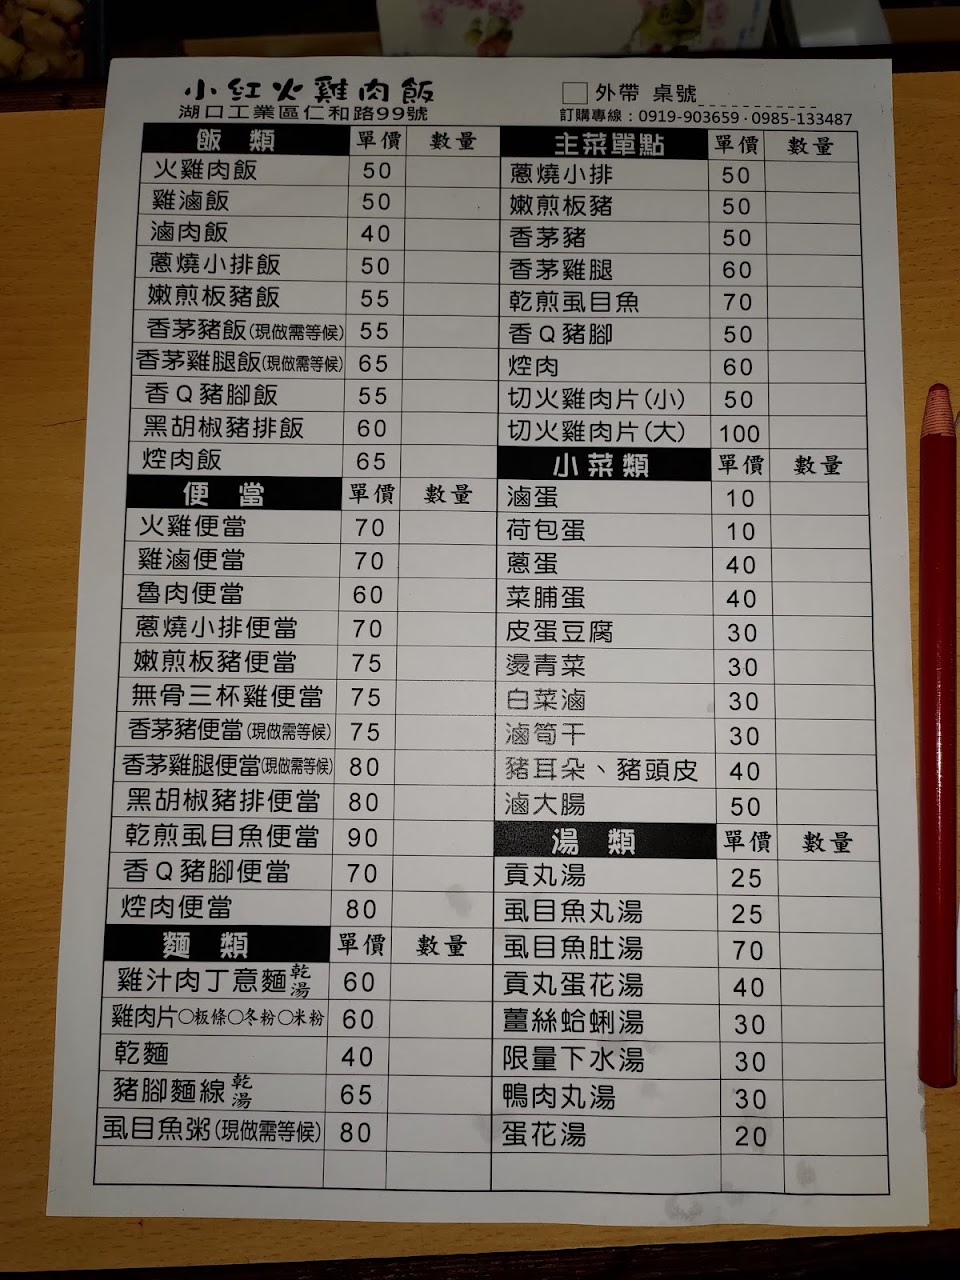 小紅火雞肉飯
湖口工業區仁和路99號
□外帶 桌號
訂購專線：0919-903659．0985-133487
飯 類 單價 數量
火雞肉飯 50
雞滷飯 50
滷肉飯 40
蔥燒小排飯 50
嫩煎板豬飯 55
香茅豬飯(現做需等候) 55
香茅雞腿飯(現做需等候) 65
香Q豬腳飯 55
黑胡椒豬排飯 60
焢肉飯 65
便 當 單價 數量
火雞便當 70
雞滷便當 70
魯肉便當 60
蔥燒小排便當 70
嫩煎板豬便當 75
無骨三杯雞便當 75
香茅豬便當(現做需等候) 75
香茅雞腿便當(現做需等候) 80
黑胡椒豬排便當 80
乾煎虱目魚便當 90
香Q豬腳便當 70
焢肉便當 80
麵 類 單價 數量
雞汁肉丁意麵乾湯 60
雞肉片○粄條○冬粉○米粉 60
乾麵 40
豬腳麵線乾湯 65
虱目魚粥(現做需等候) 80
主菜單點 單價 數量
蔥燒小排 50
嫩煎板豬 50
香茅豬 50
香茅雞腿 60
乾煎虱目魚 70
香Q豬腳 50
焢肉 60
切火雞肉片(小) 50
切火雞肉片(大) 100
小菜類 單價 數量
滷蛋 10
荷包蛋 10
蔥蛋 40
菜脯蛋 40
皮蛋豆腐 30
燙青菜 30
白菜滷 30
滷筍干 30
豬耳朵、豬頭皮 40
滷大腸 50
湯 類 單價 數量
貢丸湯 25
虱目魚丸湯 25
虱目魚肚湯 70
貢丸蛋花湯 40
薑絲蛤蜊湯 30
限量下水湯 30
鴨肉丸湯 30
蛋花湯 20